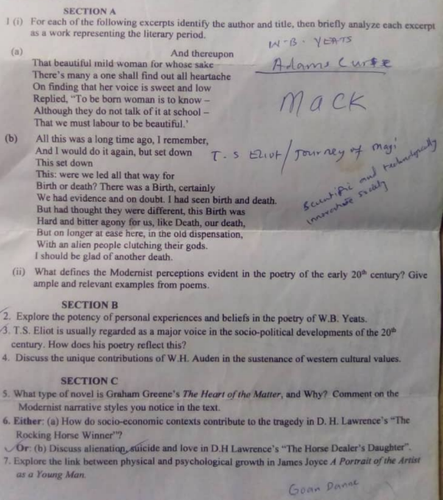 SECTION A
1 (i) For each of the following excerpts identify the author and title, then briefly analyze each excerpt
as a work representing the literary period.
W.B. YEATS
(a) And thereupon
That beautiful mild woman for whose sake
Adams Curse
There's many a one shall find out all heartache
On finding that her voice is sweet and low
Replied, "To be born woman is to know –
Although they do not talk of it at school –
That we must labour to be beautiful.'
MACK
(b) All this was a long time ago, I remember,
And I would do it again, but set down
T.S Eliot / Journey of Magi
This set down
This: were we led all that way for
Birth or death? There was a Birth, certainly
We had evidence and on doubt. I had seen birth and death.
Scientific and technologically
innovative society
But had thought they were different, this Birth was
Hard and bitter agony for us, like Death, our death,
But on longer at ease here, in the old dispensation,
With an alien people clutching their gods.
I should be glad of another death.
(ii) What defines the Modernist perceptions evident in the poetry of the early 20th century? Give
ample and relevant examples from poems.
SECTION B
2. Explore the potency of personal experiences and beliefs in the poetry of W.B. Yeats.
3. T.S. Eliot is usually regarded as a major voice in the socio-political developments of the 20th
century. How does his poetry reflect this?
4. Discuss the unique contributions of W.H. Auden in the sustenance of western cultural values.
SECTION C
5. What type of novel is Graham Greene's The Heart of the Matter, and Why? Comment on the
Modernist narrative styles you notice in the text.
6. Either: (a) How do socio-economic contexts contribute to the tragedy in D. H. Lawrence's "The
Rocking Horse Winner"?
Or: (b) Discuss alienation, suicide and love in D.H Lawrence's "The Horse Dealer's Daughter".
7. Explore the link between physical and psychological growth in James Joyce A Portrait of the Artist
as a Young Man.